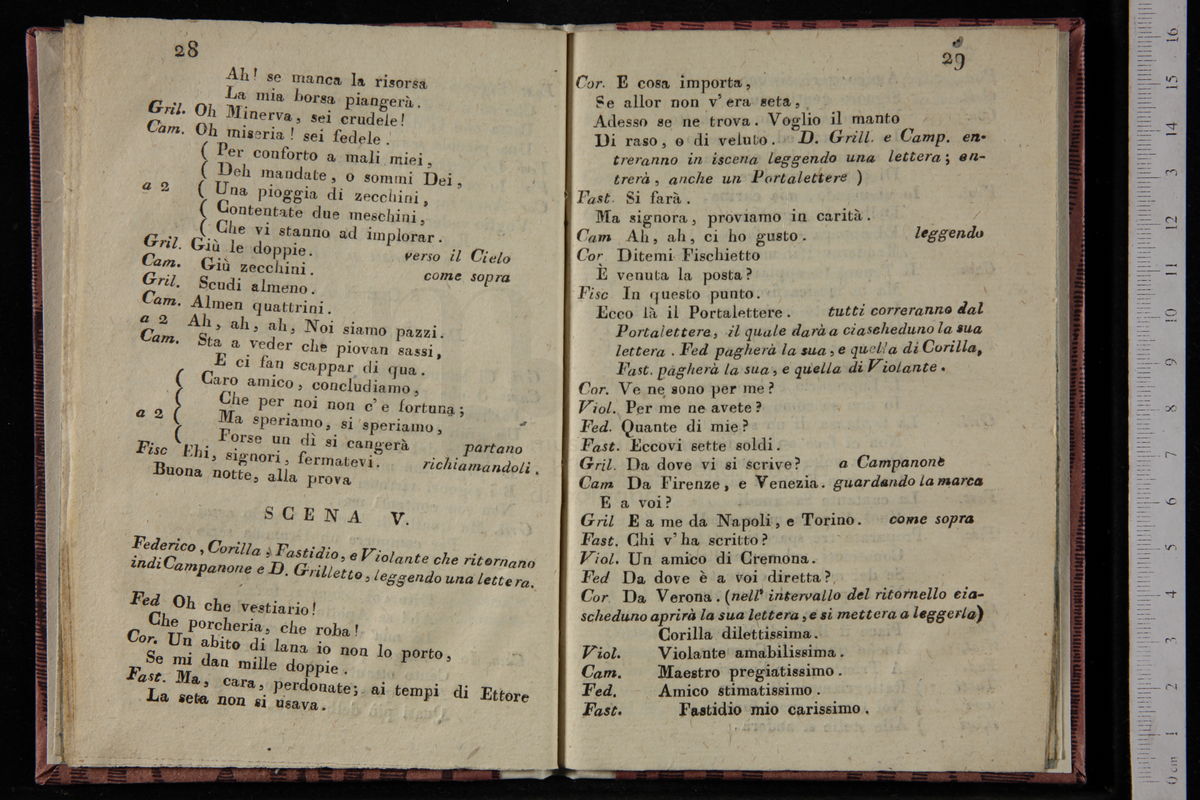 28
Ah! se manca la risorsa
La mia borsa piangerà.
Gril. Oh Minerva, sei crudele!
Cam. Oh miseria! sei fedele.
( Per conforto a mali miei,
( Deh mandate, o sommi Dei,
a 2 ( Una pioggia di zecchini,
( Contentate due meschini,
( Che vi stanno ad implorar.
Gril. Giù le doppie. verso il Cielo
Cam. Giù zecchini. come sopra
Gril. Scudi almeno.
Cam. Almen quattrini.
a 2 Ah, ah, ah, Noi siamo pazzi.
Cam. Sta a veder che piovan sassi,
E ci fan scappar di qua.
( Caro amico, concludiamo,
( Che per noi non c'e fortuna;
a 2 ( Ma speriamo, si speriamo,
( Forse un dì si cangerà partano
Fisc Ehi, signori, fermatevi. richiamandoli.
Buona notte, alla prova
SCENA V.
Federico, Corilla, Fastidio, e Violante che ritornano
indi Campanone e D. Grilletto, leggendo una lettera.
Fed Oh che vestiario!
Che porcheria, che roba!
Cor. Un abito di lana io non lo porto,
Se mi dan mille doppie.
Fast. Ma, cara, perdonate; ai tempi di Ettore
La seta non si usava.
29
Cor. E cosa importa,
Se allor non v'era seta,
Adesso se ne trova. Voglio il manto
Di raso, o di veluto. D. Grill. e Camp. en-
treranno in iscena leggendo una lettera; en-
trerà, anche un Portalettere )
Fast. Si farà.
Ma signora, proviamo in carità.
Cam Ah, ah, ci ho gusto. leggendo
Cor Ditemi Fischietto
È venuta la posta?
Fisc In questo punto.
Ecco là il Portalettere. tutti correranno dal
Portalettere, il quale darà a ciascheduno la sua
lettera. Fed pagherà la sua, e quella di Corilla,
Fast. pagherà la sua, e quella di Violante.
Cor. Ve ne sono per me?
Viol. Per me ne avete?
Fed. Quante di mie?
Fast. Eccovi sette soldi.
Gril. Da dove vi si scrive? a Campanone
Cam Da Firenze, e Venezia. guardando la marca
E a voi?
Gril E a me da Napoli, e Torino. come sopra
Fast. Chi v'ha scritto?
Viol. Un amico di Cremona.
Fed Da dove è a voi diretta?
Cor Da Verona. (nell' intervallo del ritornello cia-
scheduno aprirà la sua lettera, e si mettera a leggerla)
Corilla dilettissima.
Viol. Violante amabilissima.
Cam. Maestro pregiatissimo.
Fed. Amico stimatissimo.
Fast. Fastidio mio carissimo.